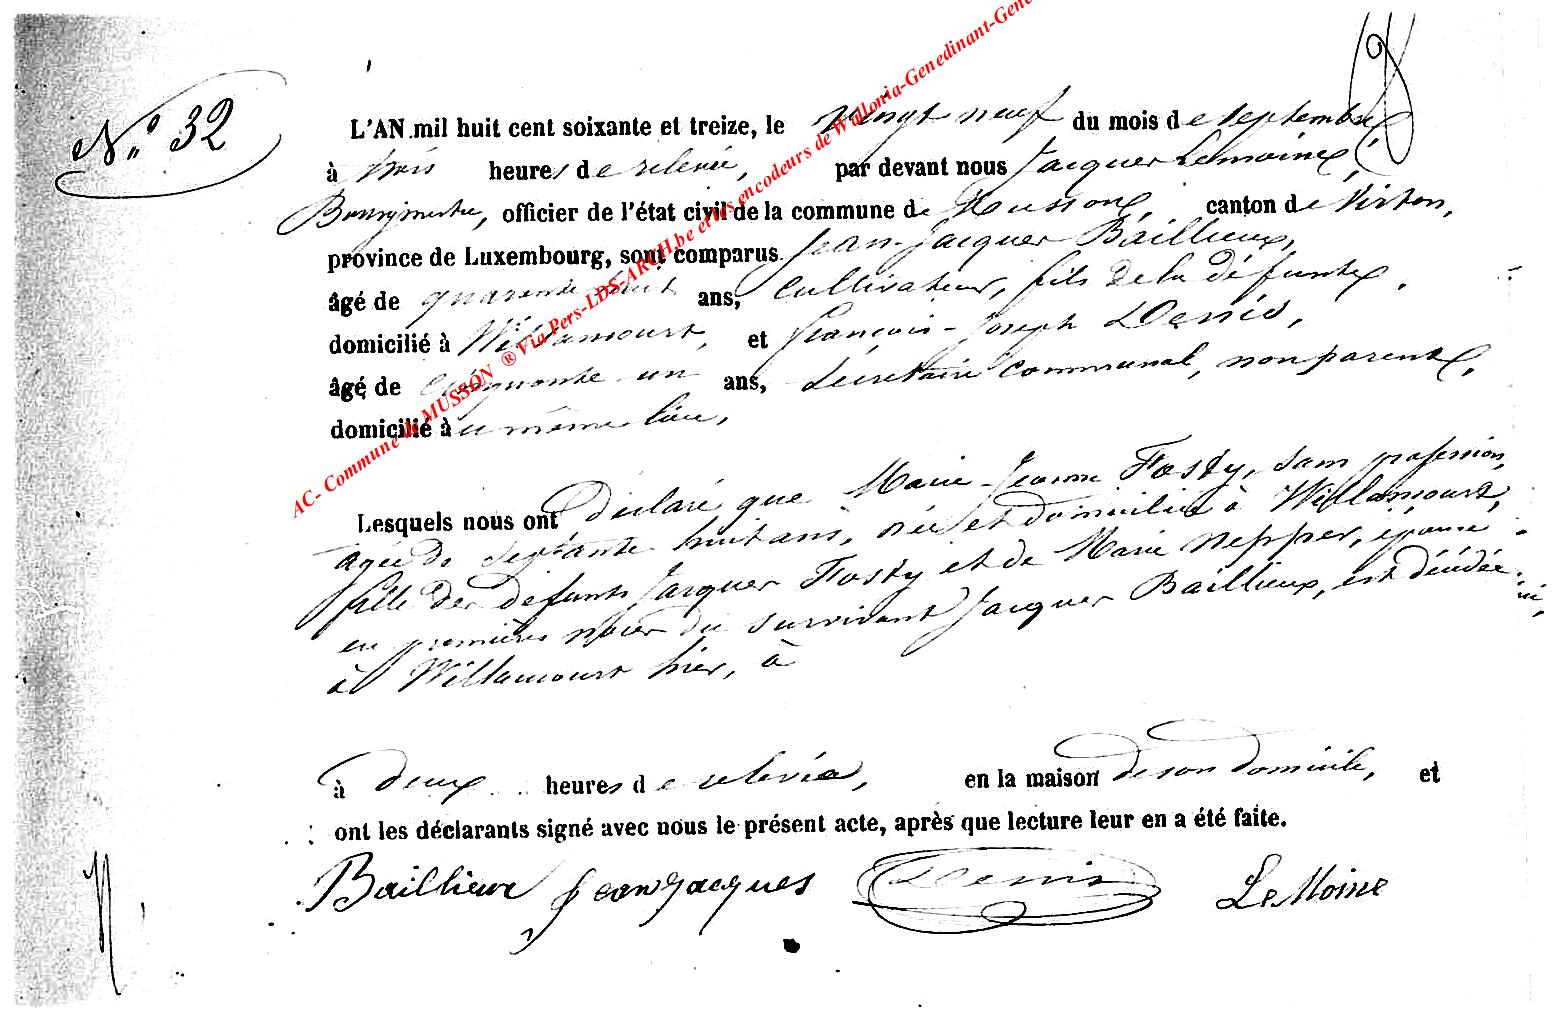 N° 32
L'AN mil huit cent soixante et treize, le vingt neuf du mois de septembre
à trois heures de relevée, par devant nous Jacques Lemoine,
Bourgmestre, officier de l'état civil de la commune de Musson, canton de Virton,
province de Luxembourg, sont comparus Jean-Jacques Baillieux,
âgé de quarante huit ans, cultivateur, fils de la défunte,
domicilié à Willancourt, et François-Joseph Denis,
âgé de cinquante un ans, secrétaire communal, non parent,
domicilié au même lieu,
Lesquels nous ont déclaré que Marie-Jeanne Fosty, sans profession,
âgée de septante huit ans, née et domiciliée à Willancourt,
fille des défunts Jacques Fosty et de Marie Nepper, épouse
en premières noces du survivant Jacques Baillieux, est décédée
à Willancourt hier, à
à deux heures de relevée, en la maison de son domicile, et
ont les déclarants signé avec nous le présent acte, après que lecture leur en a été faite.
Baillieux Jean Jacques Denis LeMoine
AC- Commune de MUSSON ® Via Pers-LDS-ARCH.be et les encodeurs de Wallonia-Genedinant-Gene